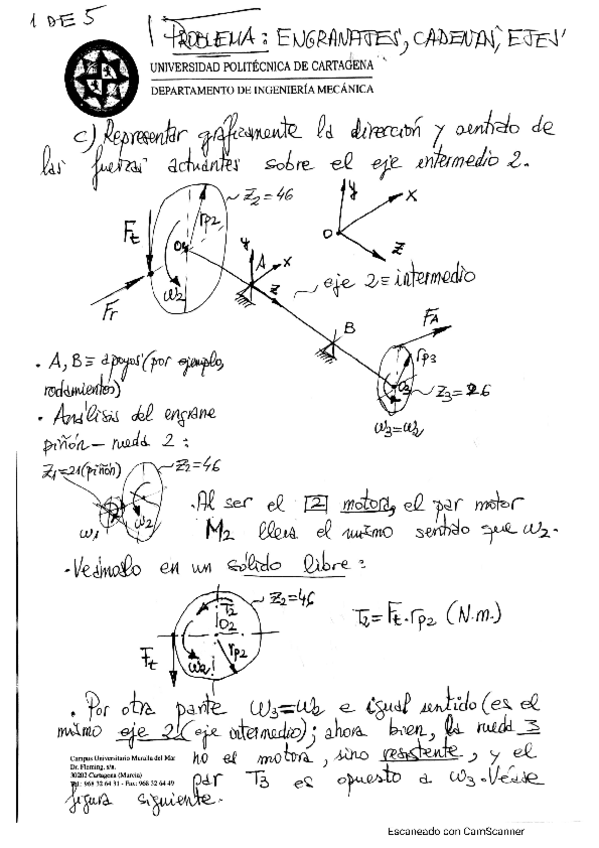 1 DE 5
PROBLEMA: ENGRANAJES, CADENAS, EJES
UNIVERSIDAD POLITÉCNICA DE CARTAGENA
DEPARTAMENTO DE INGENIERÍA MECÁNICA
c) Representar gráficamente la dirección y sentido de
las fuerzas actuantes sobre el eje intermedio 2.
~ Z2=46
y
x
O
z
Ft
rp2
ω2
Fr
y
A
x
z
eje 2≡intermedio
B
FA
rp3
O3
~Z3=26
ω3=ω2
· A, B≡ apoyos (por ejemplo,
rodamientos)
· Análisis del engrane
piñón – rueda 2:
Z1=21(piñón)
~Z2=46
ω1
ω2
· Al ser el 2 motora, el par motor
M2 lleva el mismo sentido que ω2.
· Veámoslo en un sólido libre:
~Z2=46
T2
O2
rp2
Ft
ω2
T2=Ft·rp2 (N.m.)
· Por otra parte ω3=ω2 e igual sentido (es el
mismo eje 2 (eje intermedio); ahora bien, la rueda 3
no es motora, sino resistente, y el
par T3 es opuesto a ω3. Véase
figura siguiente.
Campus Universitario Muralla del Mar
Dr. Fleming, s/n.
30202 Cartagena (Murcia)
Tel.: 968 32 64 31 - Fax: 968 32 64 49
Escaneado con CamScanner